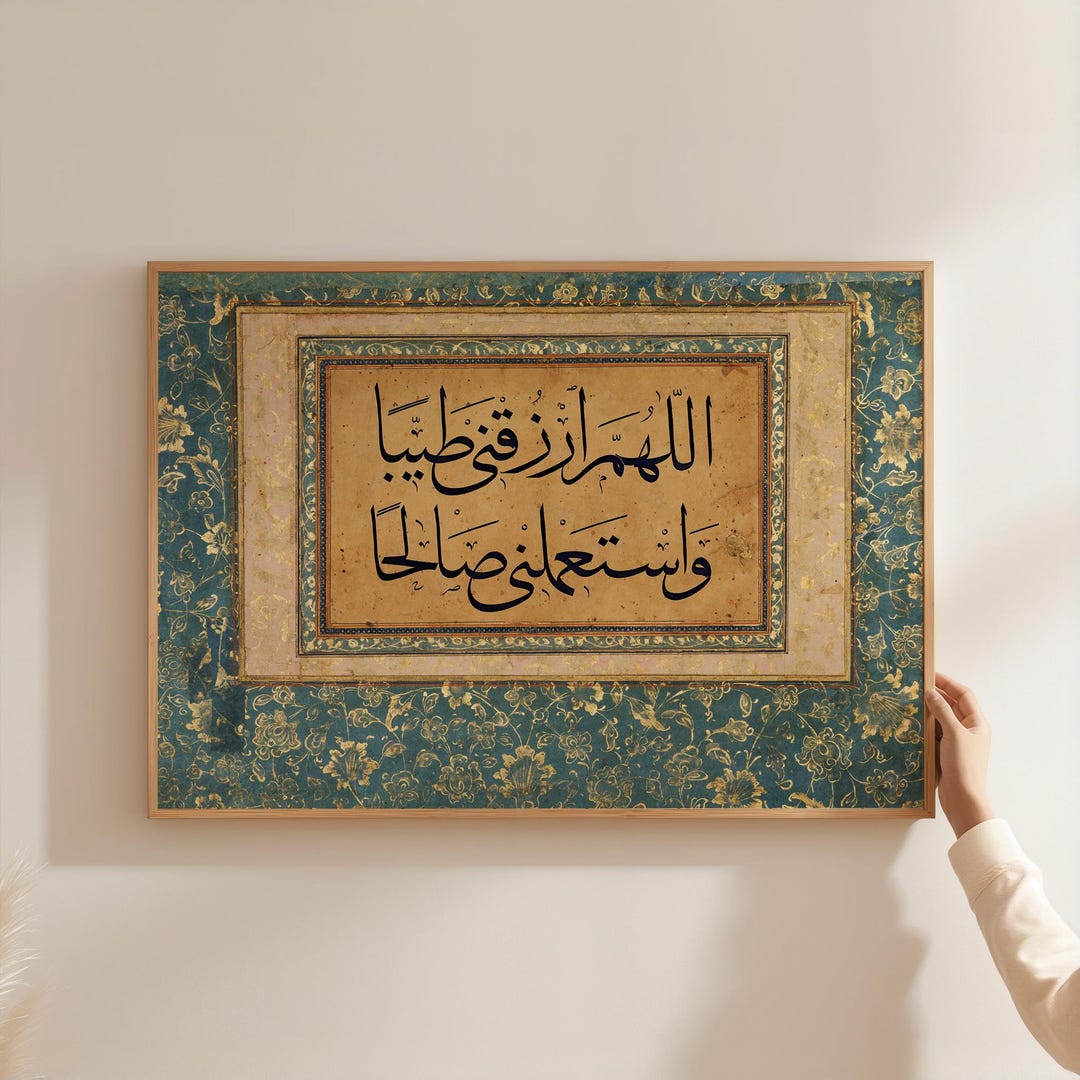 اللّهمّ ارزقني طيّبًا
واستعملني صالحًا